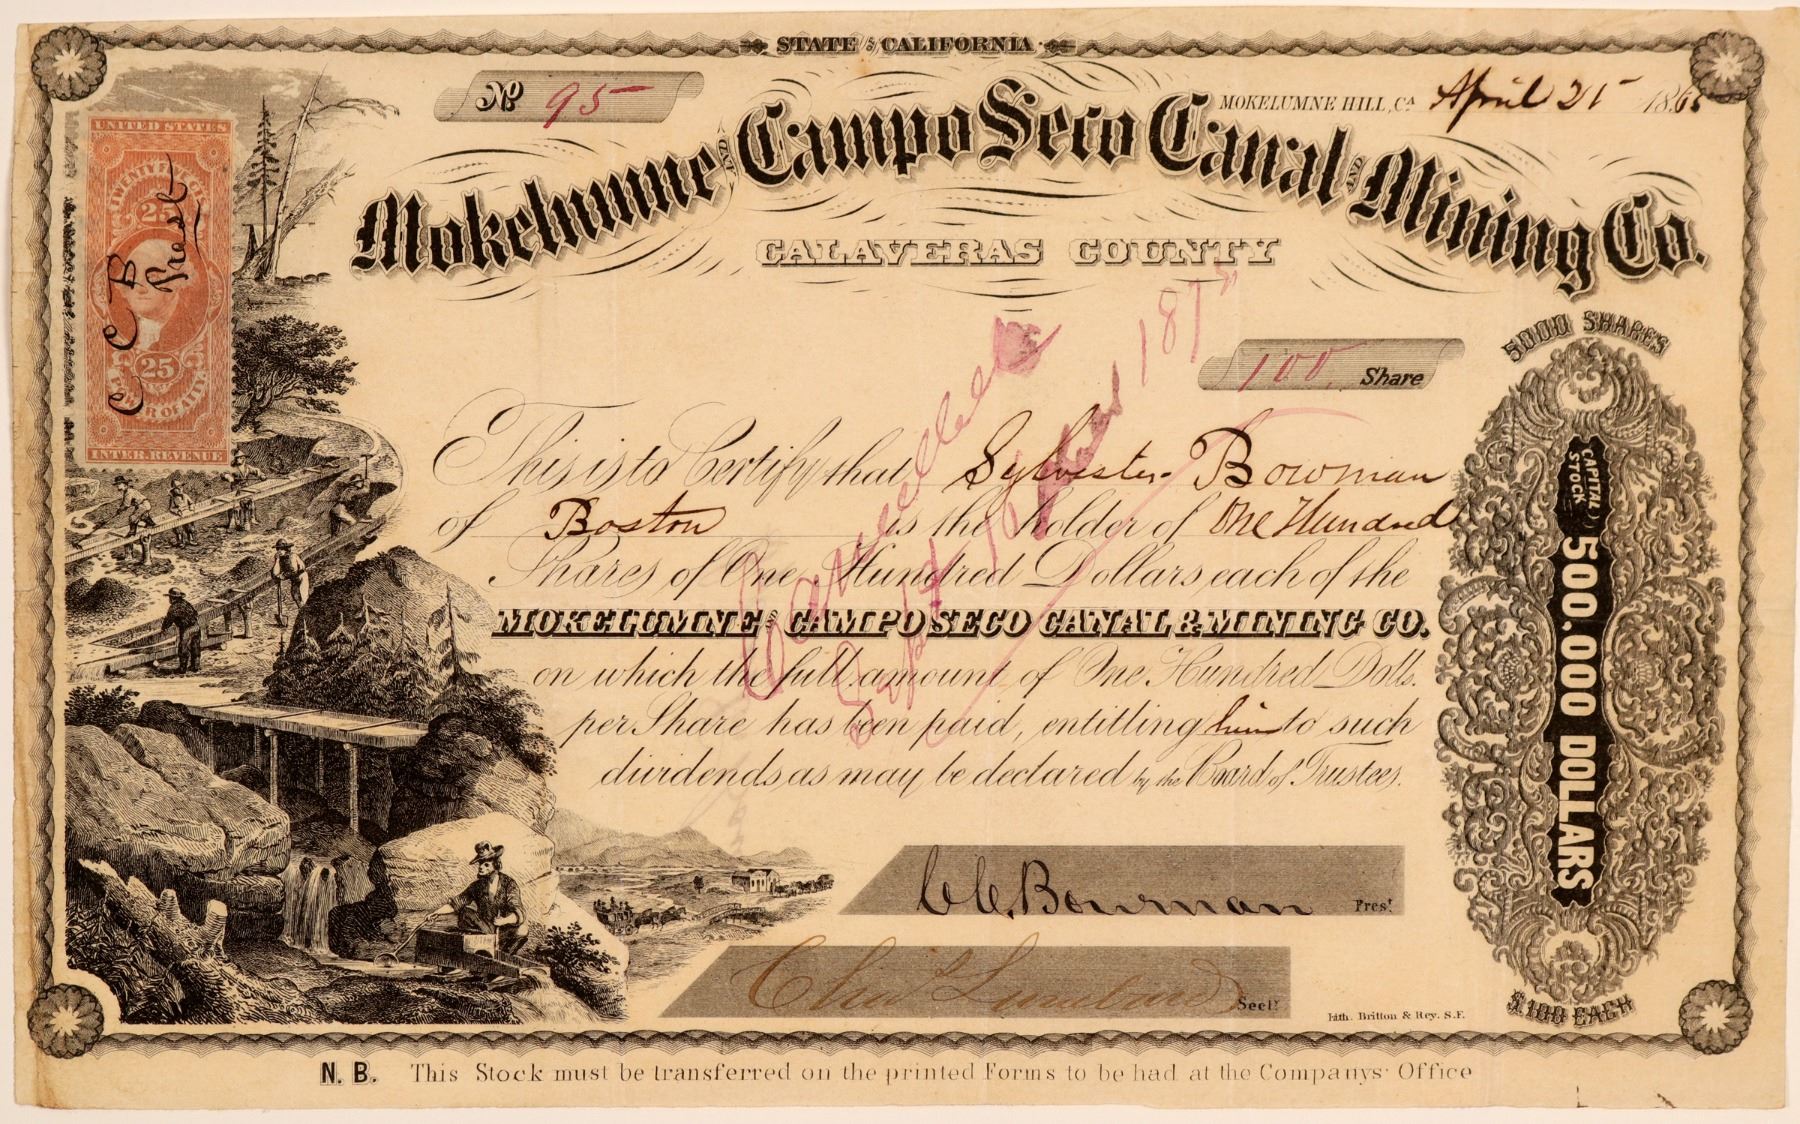 STATE OF CALIFORNIA
No 95
MOKELUMNE HILL, CA April 25 1865
Mokelumne AND Campo Seco Canal AND Mining Co.
CALAVERAS COUNTY
UNITED STATES
25
25
POWER OF ATT'Y
INTER. REVENUE
C C B
Prest
100 Share
This is to Certify that Sylvester Bowman
of Boston is the holder of One Hundred
Shares of One Hundred Dollars each of the
MOKELUMNE & CAMPO SECO CANAL & MINING CO.
on which the full amount of One Hundred Dolls.
per Share has been paid, entitling him to such
dividends as may be declared by the Board of Trustees.
Cancelled
Sept 187
5000 SHARES
CAPITAL STOCK
500.000 DOLLARS
$100 EACH
C C Bowman Prest
Lombard Secty
Lith. Britton & Rey. S.F.
N. B. This Stock must be transferred on the printed Forms to be had at the Companys' Office